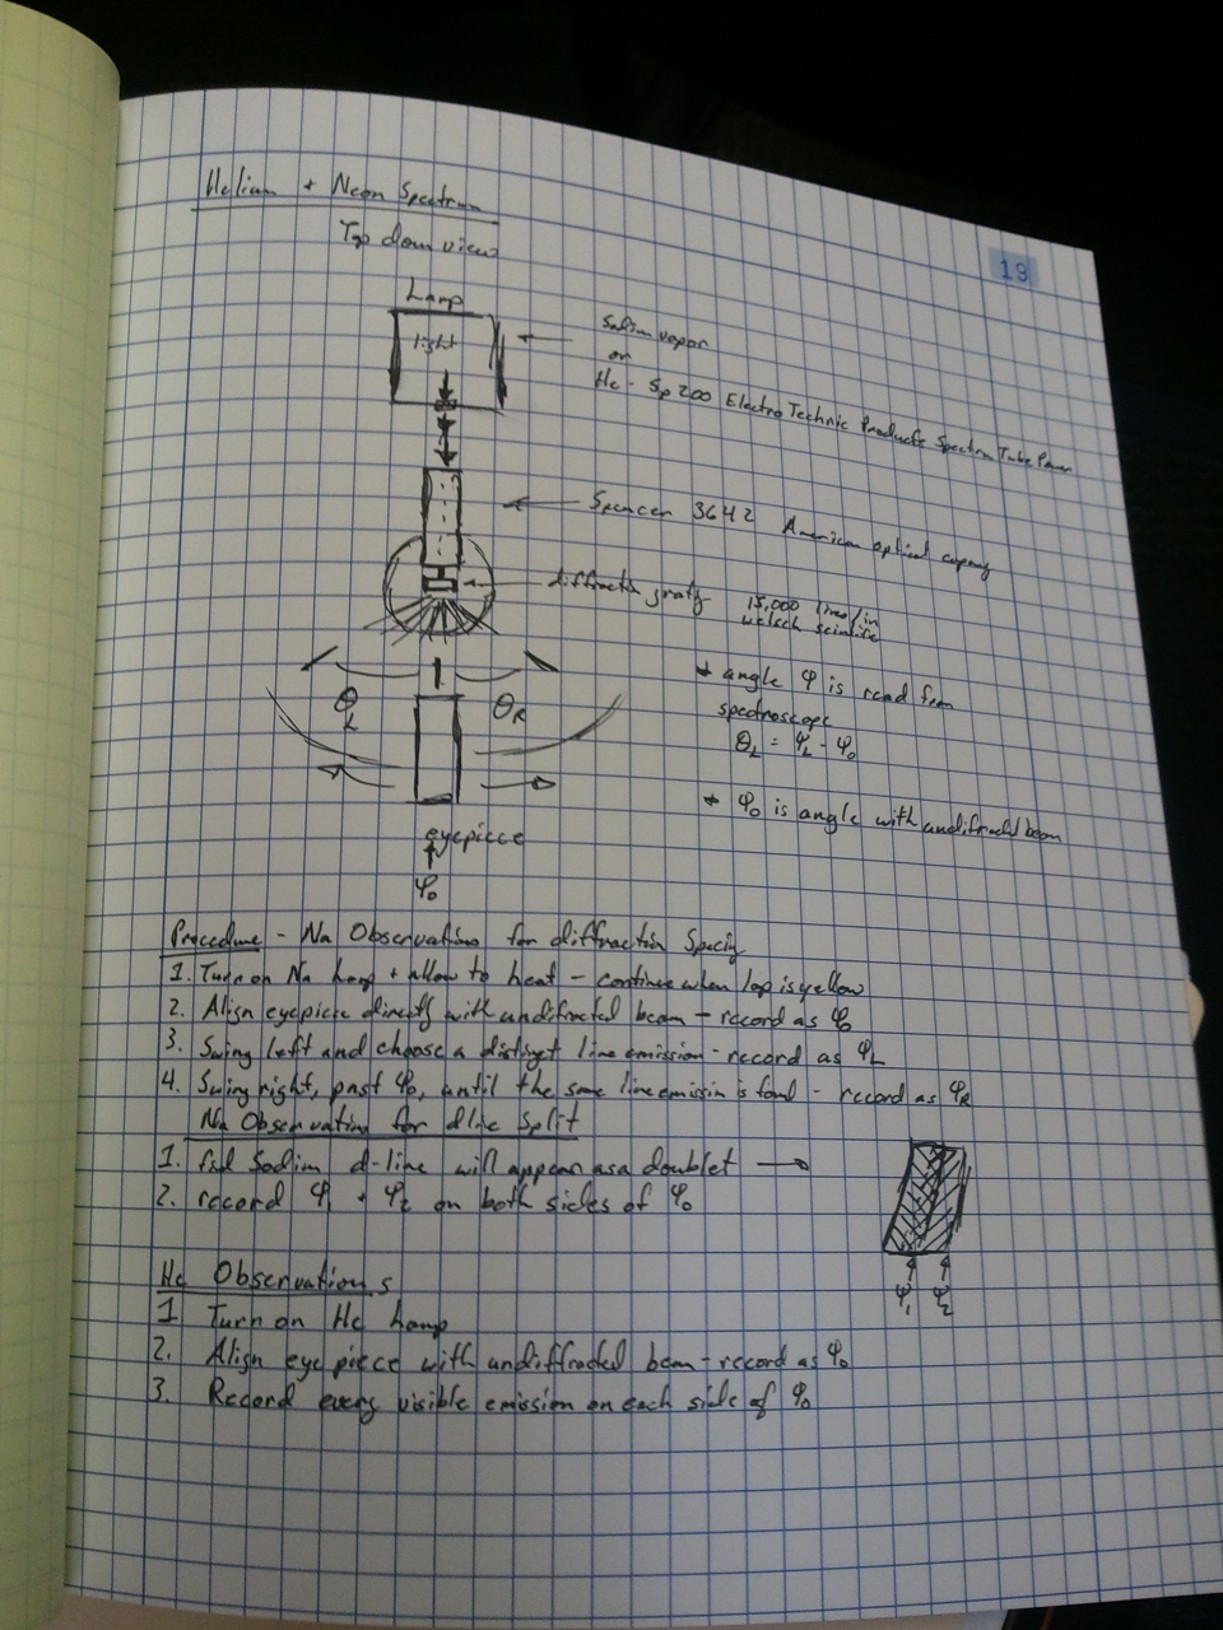 Helium + Neon Spectrum
Top down view
19
Lamp
light
Sodium vapor
or
He - Sp200 Electro Technic Products Spectrum Tube Power
Spencer 3642 American optical company
diffraction grating 15,000 lines/in
welsch scintific
* angle φ is read from
spectroscope
θL = φL - φ0
θL
θR
* φ0 is angle with undifracted beam
eyepiece
φ0
Procedure - Na Observations for diffraction Spacing
1. Turn on Na Lamp + allow to heat - continue when lap is yellow
2. Align eyepiece directly with undifracted beam - record as φ0
3. Swing left and choose a distinct line emission - record as φL
4. Swing right, past φ0, until the same line emission is found - record as φR
Na Observation for d line Split
1. find Sodium d-line will appear as a doublet →
2. record φ1 + φ2 on both sides of φ0
φ1 φ2
He Observations
1 Turn on He Lamp
2. Align eye piece with undiffracted beam - record as φ0
3. Record every visible emission on each side of φ0